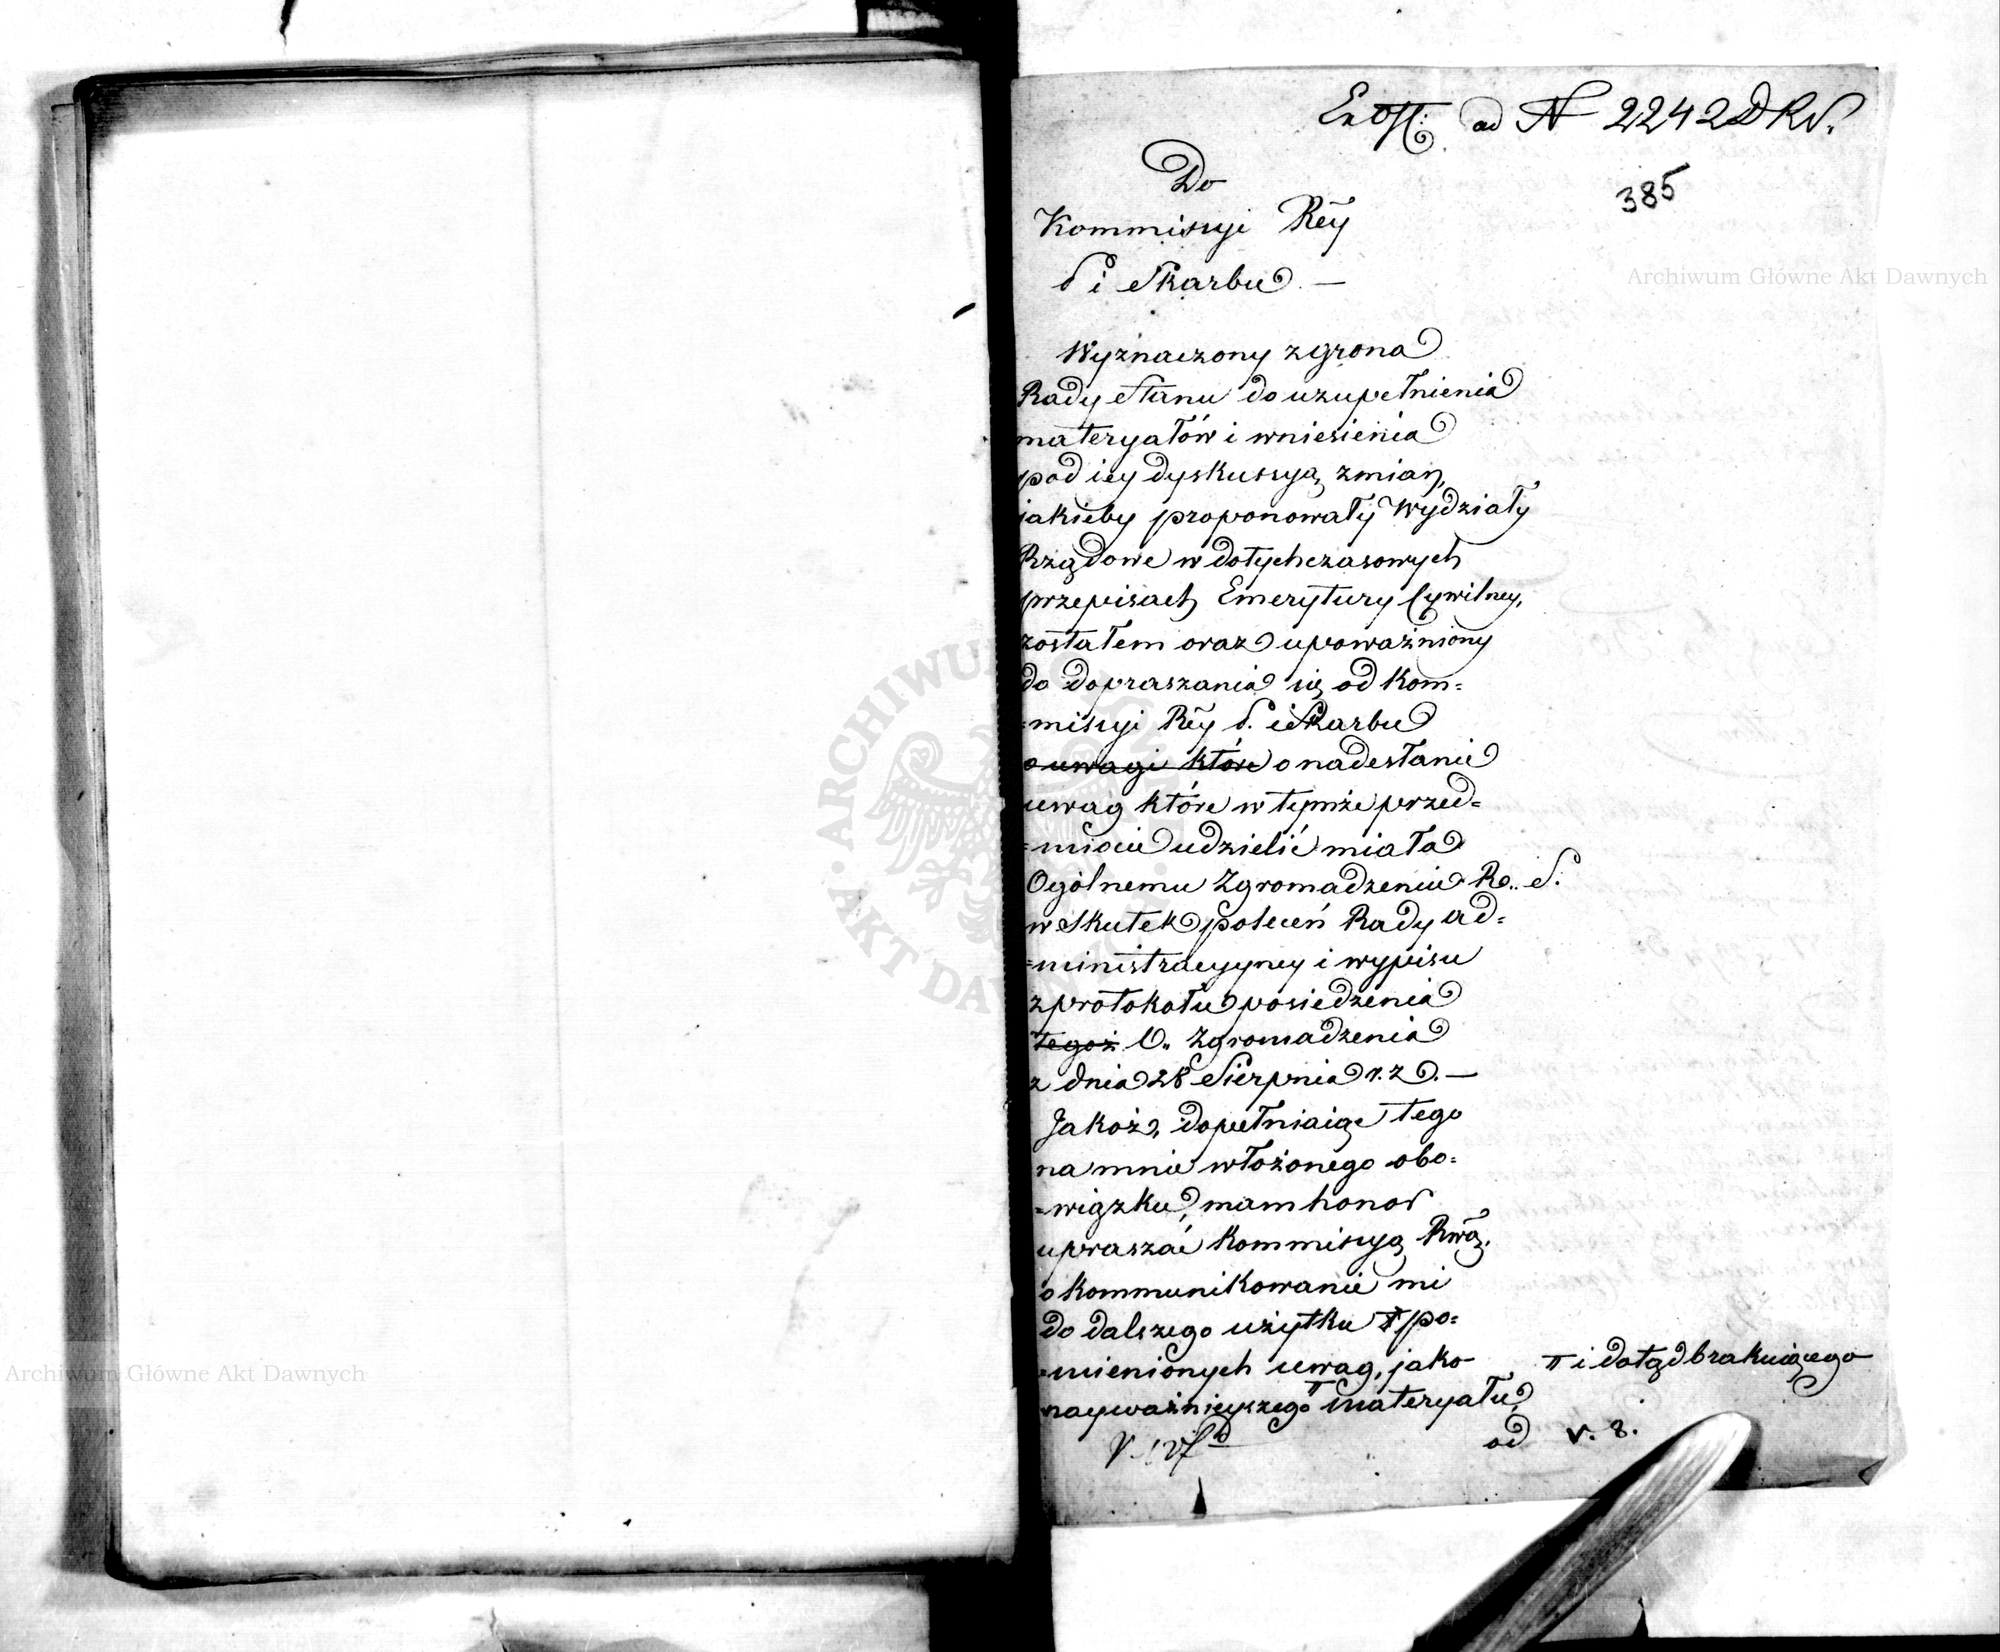 ad N 2242 DRS.
385
Do
Kommissyi Rey
P i Skarbu. —
Wyznaczony z grona
Rady Stanu do uzupełnienia
materyałów i wniesienia
pod iey dyskussyą zmian,
iakieby proponowały Wydziały
Rządowe w dotychczasowych
przepisach Emerytury Cywilney,
zostałem oraz upoważniony
do dopraszania się od Kom=
=missyi Rey P. i Skarbu
o uwagi które o nadesłanie
uwag które w tymże przed=
=miocie udzielić miała
Ogólnemu Zgromadzeniu R.. S.
w skutek poleceń Rady ad=
=ministracyyney i wypisu
z protokołu posiedzenia
tegoż O.. Zgromadzenia
z dnia 28 Sierpnia r. z. —
Jakoż, dopełniaiąc tego
na mnie włożonego obo=
=wiązku, mam honor
upraszać Kommissyą Rwą.
o kommunikowanie mi
do dalszego użytku po=
=mienionych uwag, jako
nayważnieyszego materyału,
i dotąd brakuiącego
od
v. 8.
Archiwum Główne Akt Dawnych
Archiwum Główne Akt Dawnych